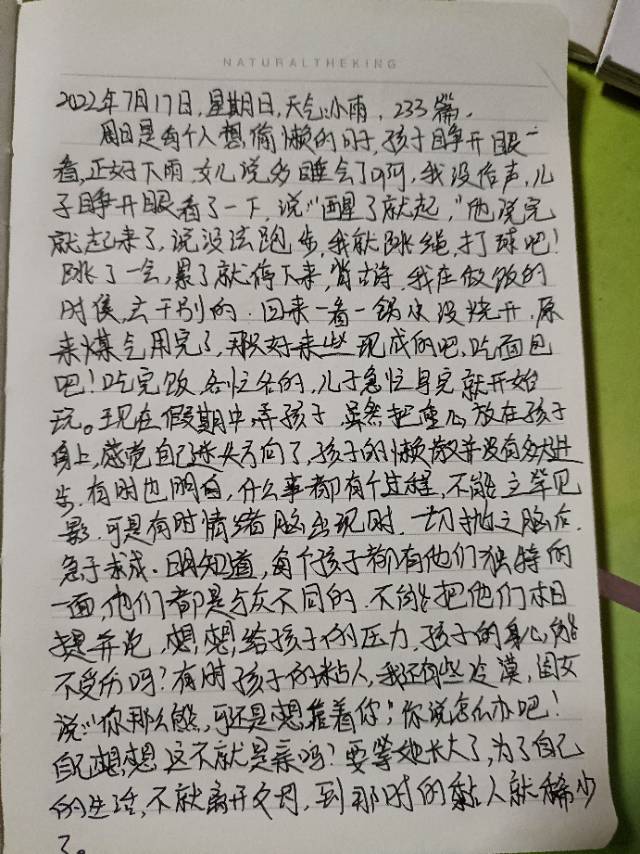 NATURALTHEKING
2022年7月17日,星期日,天气:小雨,233篇.
周日是每个人想偷懒的日子,孩子睁开眼一
看,正好下雨,女儿说多睡会了啊,我没作声,儿
子睁开眼看了一下,说:"醒了就起,"他说完
就起来了,说没法跑步,我就跳绳,打球吧!
跳了一会,累了就停下来,背古诗,我在做饭的
时侯,去干别的.回来一看一锅水没烧开,原
来煤气用完了,那只好来些现成的吧,吃面包
吧!吃完饭,各忙各的,儿子急忙写完就开始
玩。现在假期中,弄孩子,虽然把重心放在孩子
身上,感觉自己迷失方向了,孩子的懒散并没有多大进
步.有时也明白,什么事都有个过程,不能立竿见
影.可是有时情绪脑出现时.一切抛之脑后.
急于求成.明知道,每个孩子都有他们独特的
一面,他们都是与众不同的.不能把他们相
提并论,想想给孩子的压力,孩子的身心能
不受伤吗?有时孩子的粘人,我还有些冷漠,闺女
说:"你那么熊,可还是想靠着你;你说怎么办吧!
自己想想这不就是亲吗?要等她长大了,为了自己
的生活,不就离开父母,到那时的黏人就稀少
了。